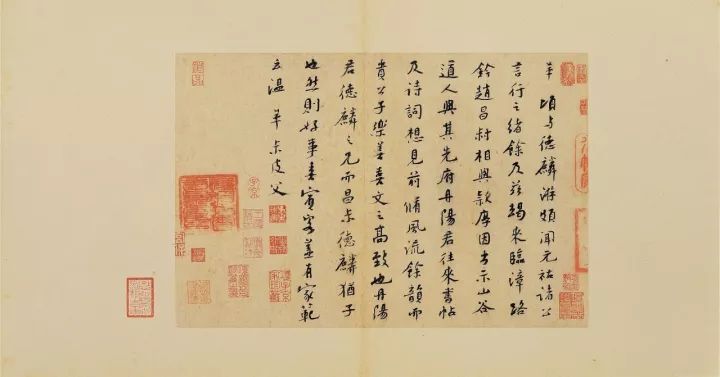 頃与德麟游頗聞元祐諸公
言行之緒餘及茲朅来臨漳路
鈐趙昌相與欵厚因出示山谷
道人與其先府丹陽君往来書帖
及詩詞想見前脩風流餘韻而
貴公子樂善喜文之高致也丹陽
君德麟之兄而昌尗德麟猶子
也然則好事喜賓客蓋有家範
立温尗皮父
子京